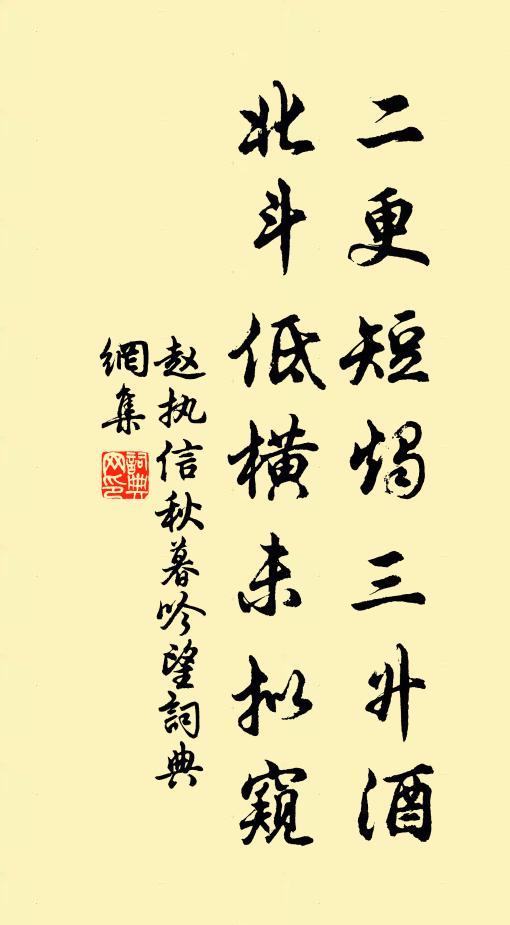 二更短烛三升酒
北斗低横未拟窥
赵执信秋暮吟望词典
網集
詞典
网印